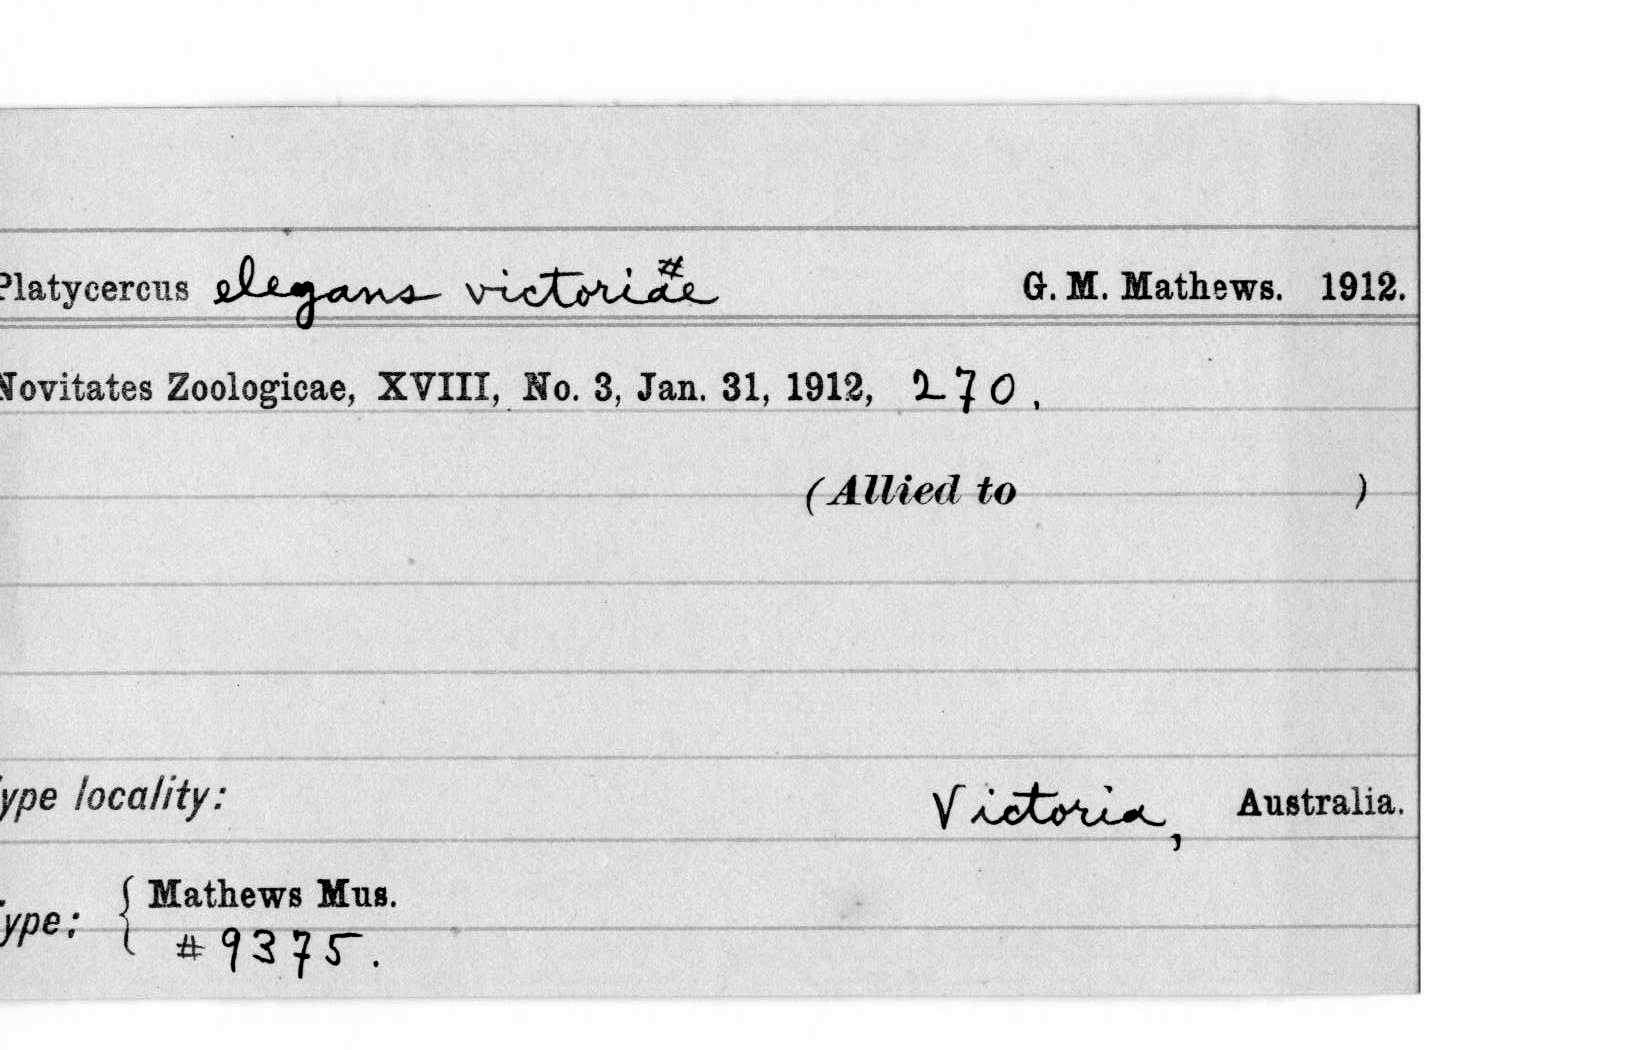 Platycercus elegans victoriae # G. M. Mathews. 1912.
Novitates Zoologicae, XVIII, No. 3, Jan. 31, 1912, 270.
(Allied to )
ype locality: Victoria, Australia.
ype: { Mathews Mus.
#9375.